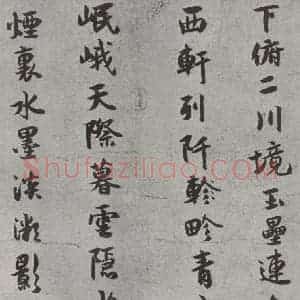 下俯二川境玉壘連
西軒列阡軫畛青
岷峨天際暮雲隱
煙裏水墨淡微影
Shufaziliao.com